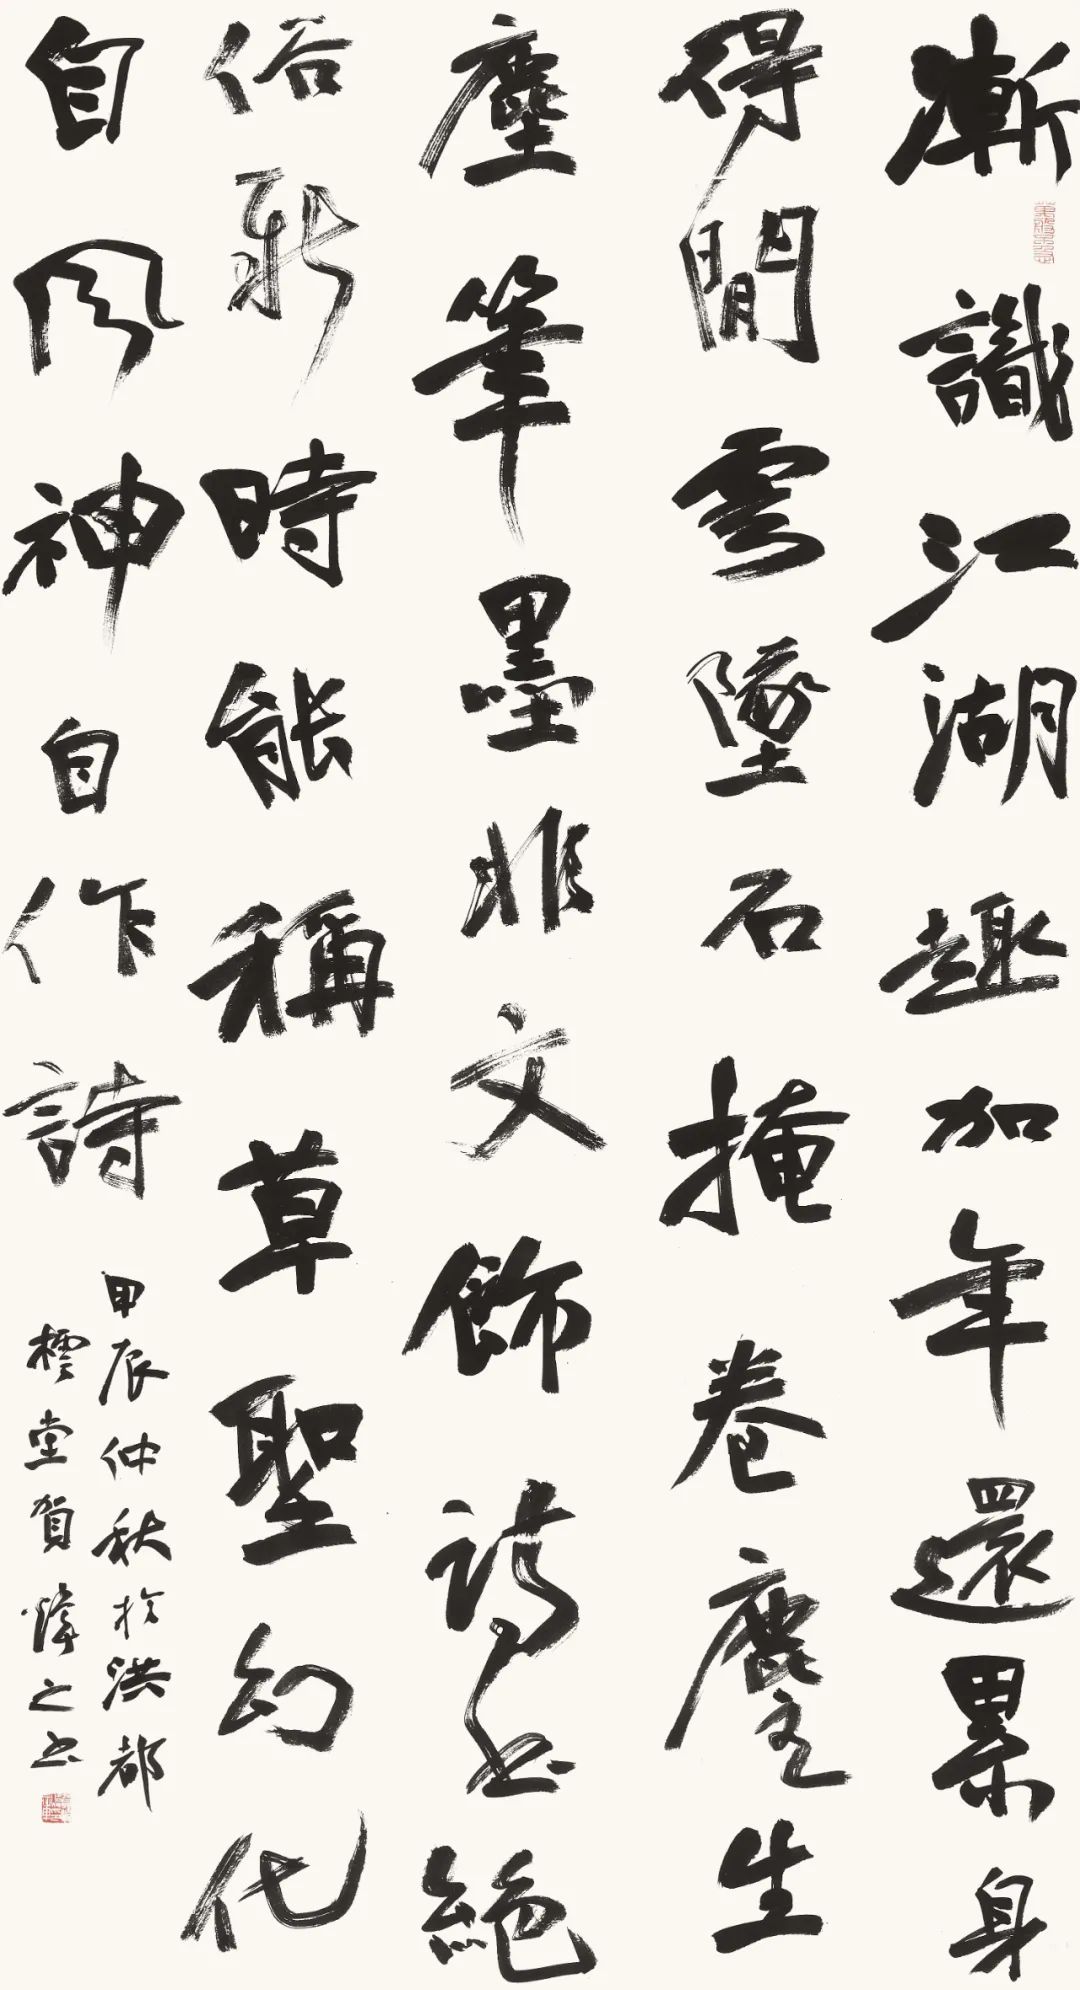 漸識江湖趣加年還累身
得閒雲墜石掩卷麈生
塵筆墨非文飾詩書絕
俗新時能稱草聖幻化
自風神自作詩
甲辰仲秋於洪都
橒堂賀煒之書